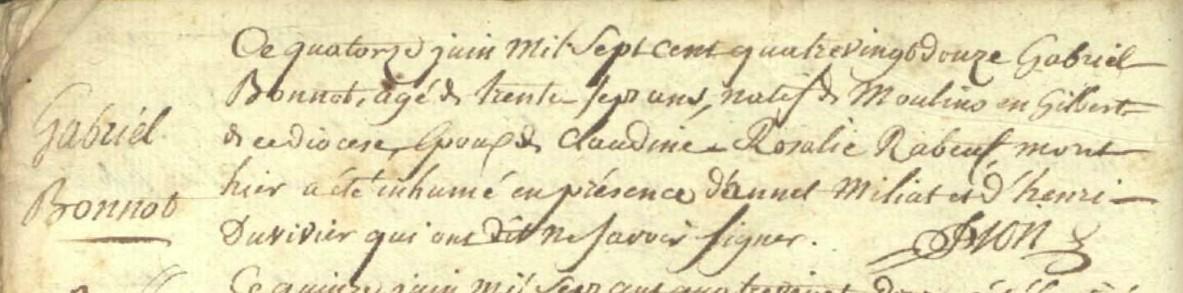 Ce quatorze juin mil Sept cent quatrevingtdouze Gabriël
Bonnot, agé de trente Sept ans, natif de Moulins en Gilbert
Gabriël
de ce diocese, Epoux de Claudine Rosalie Rabeuf, mort
hier a été inhumé en présence d'
Miliat et d'henri
Bonnot
Duvivier qui ont dit ne savoir signer.
Ce quinze juin mil Sept